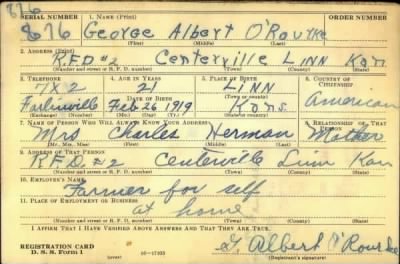 876
SERIAL NUMBER 1. NAME (Print) ORDER NUMBER
876 George Albert O'Rourke
(First) (Middle) (Last)
2. ADDRESS (Print)
RFD #2 Centerville LINN Kan
(Number and street or R. F. D. number) (Town) (County) (State)
3. TELEPHONE 4. AGE IN YEARS 5. PLACE OF BIRTH 6. COUNTRY OF CITIZENSHIP
7X2 21 LINN
DATE OF BIRTH (Town or county)
Farlinville Feb 26 1919 Kans. American
(Exchange) (Number) (Mo.) (Day) (Yr.) (State or country)
7. NAME OF PERSON WHO WILL ALWAYS KNOW YOUR ADDRESS 8. RELATIONSHIP OF THAT PERSON
Mrs Charles Herman Mother
(Mr., Mrs., Miss) (First) (Middle) (Last)
9. ADDRESS OF THAT PERSON
R.F.D. #2 Centerville Linn Kan
(Number and street or R. F. D. number) (Town) (County) (State)
10. EMPLOYER'S NAME
Farmer for self
11. PLACE OF EMPLOYMENT OR BUSINESS
at home
(Number and street or R. F. D. number) (Town) (County) (State)
I AFFIRM THAT I HAVE VERIFIED ABOVE ANSWERS AND THAT THEY ARE TRUE.
G Albert O'Rourke
REGISTRATION CARD
D. S. S. Form 1 (over) (Registrant's signature)